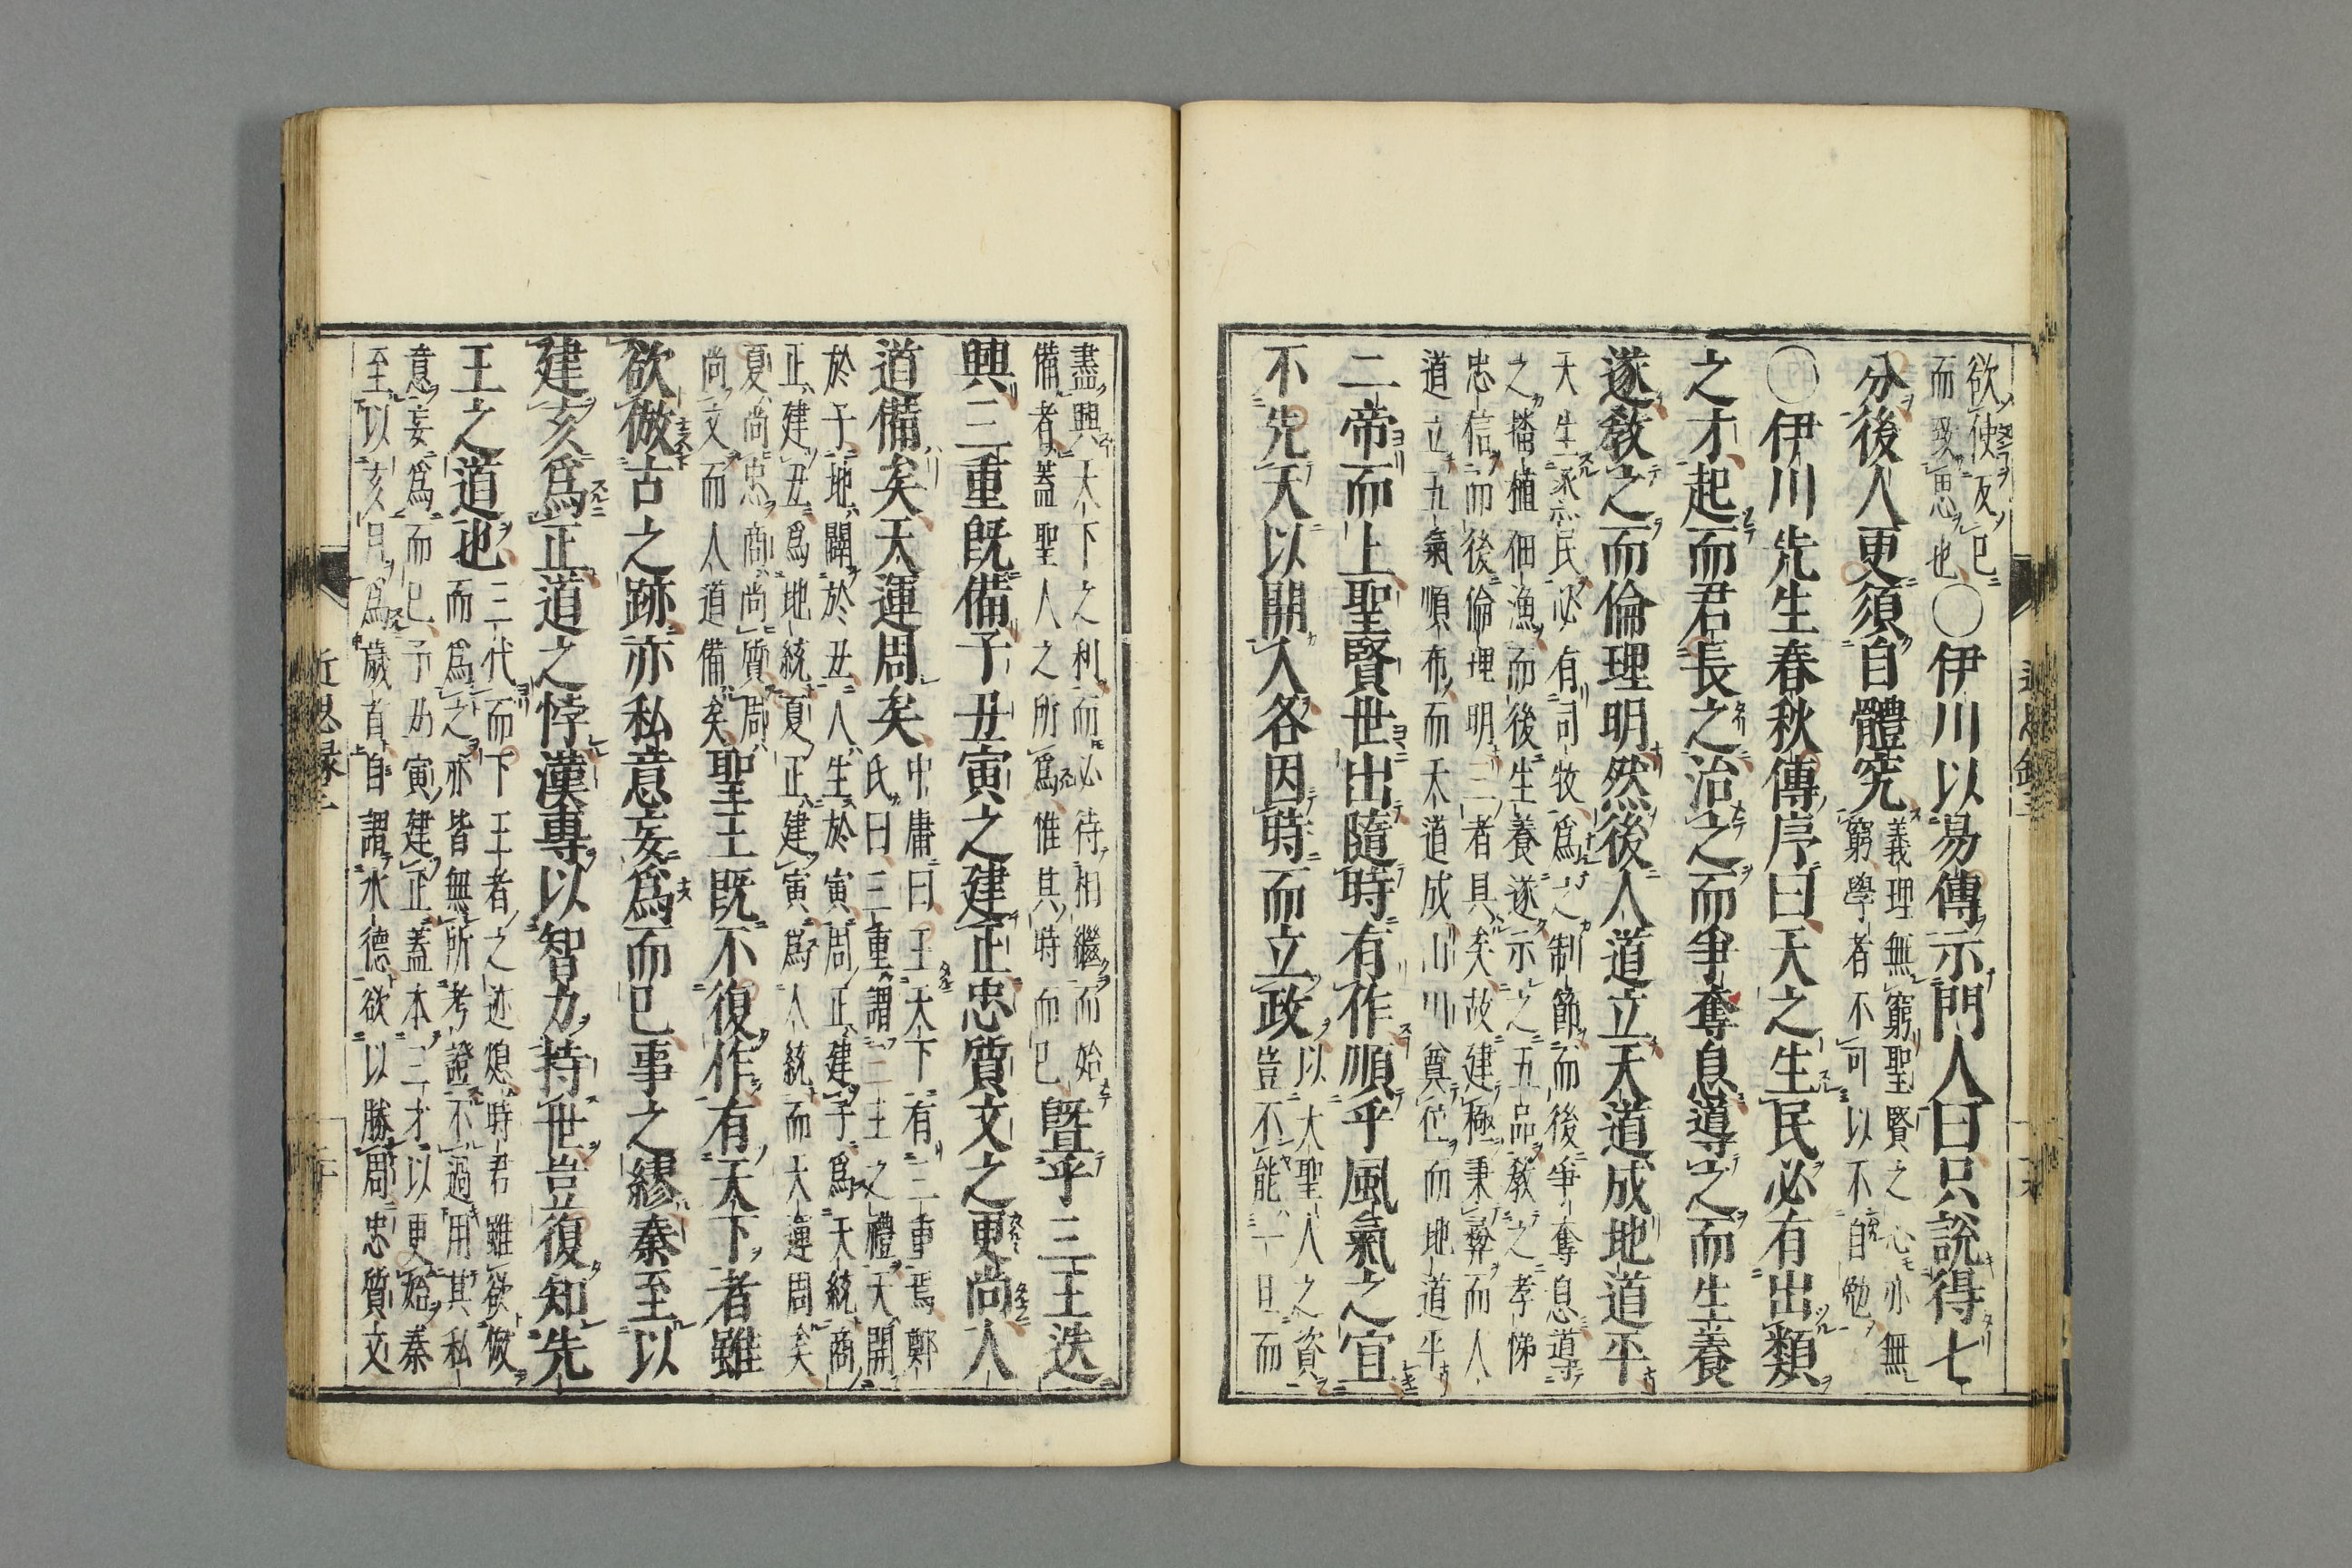 欲使反已
而致思也
○伊川以易傳示門人曰只說得七
分後人更須自體究
義理無窮聖賢之心亦無
窮學者不可以不自勉
○伊川先生春秋傳序曰天之生民必有出類
之才起而君長之治之而爭奪息導之而生養
遂敎之而倫理明然後人道立天道成地道平
天生烝民必有司牧爲之制節而後爭奪息導
之播植佃漁而後生養遂示之五品敎之孝悌
忠信而後倫理明三者具矣故建極秉彝而人
道立五氣順布而天道成山川奠位而地道平
二帝而上聖賢世出隨時有作順乎風氣之宜
不先天以開人各因時而立政
以大聖人之資
豈不能一旦而
盡興天下之利而必待相繼而始
備者蓋聖人之所爲惟其時而已
曁乎三王迭
興三重旣備子丑寅之建正忠質文之更尚人
道備矣天運周矣
中庸曰王天下有三重焉鄭
氏曰三重謂三王之禮天開
於子地闢於丑人生於寅周正建子爲天統商
正建丑爲地統夏正建寅爲人統而天運周矣
夏尚忠商尚質周
尚文而人道備矣
聖王旣不復作有天下者雖
欲倣古之跡亦私意妄爲而已事之繆秦至以
建亥爲正道之悖漢專以智力持世豈復知先
王之道也
三代而下王者之迹熄時君雖欲倣
而爲之亦皆無所考證不過用其私
意妄爲而已子丑寅建正蓋本三才以更始秦
至以亥月爲歲首自謂水德欲以勝周忠質文
近思錄三